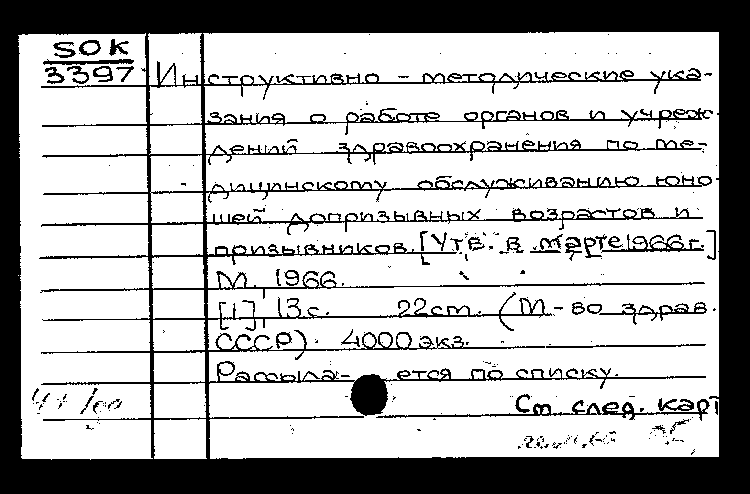 SOK
3397
Инструктивно-методические ука-
зания о работе органов и учреж-
дений здравоохранения по ме-
дицинскому обслуживанию юно-
шей допризывных возрастов и
призывников. [Утв. в марте 1966 г.]
М., 1966.
[1], 13 с. 22 см. (М-во здрав.
СССР). 4000 экз.
Рассыла- ется по списку.
См след. карт